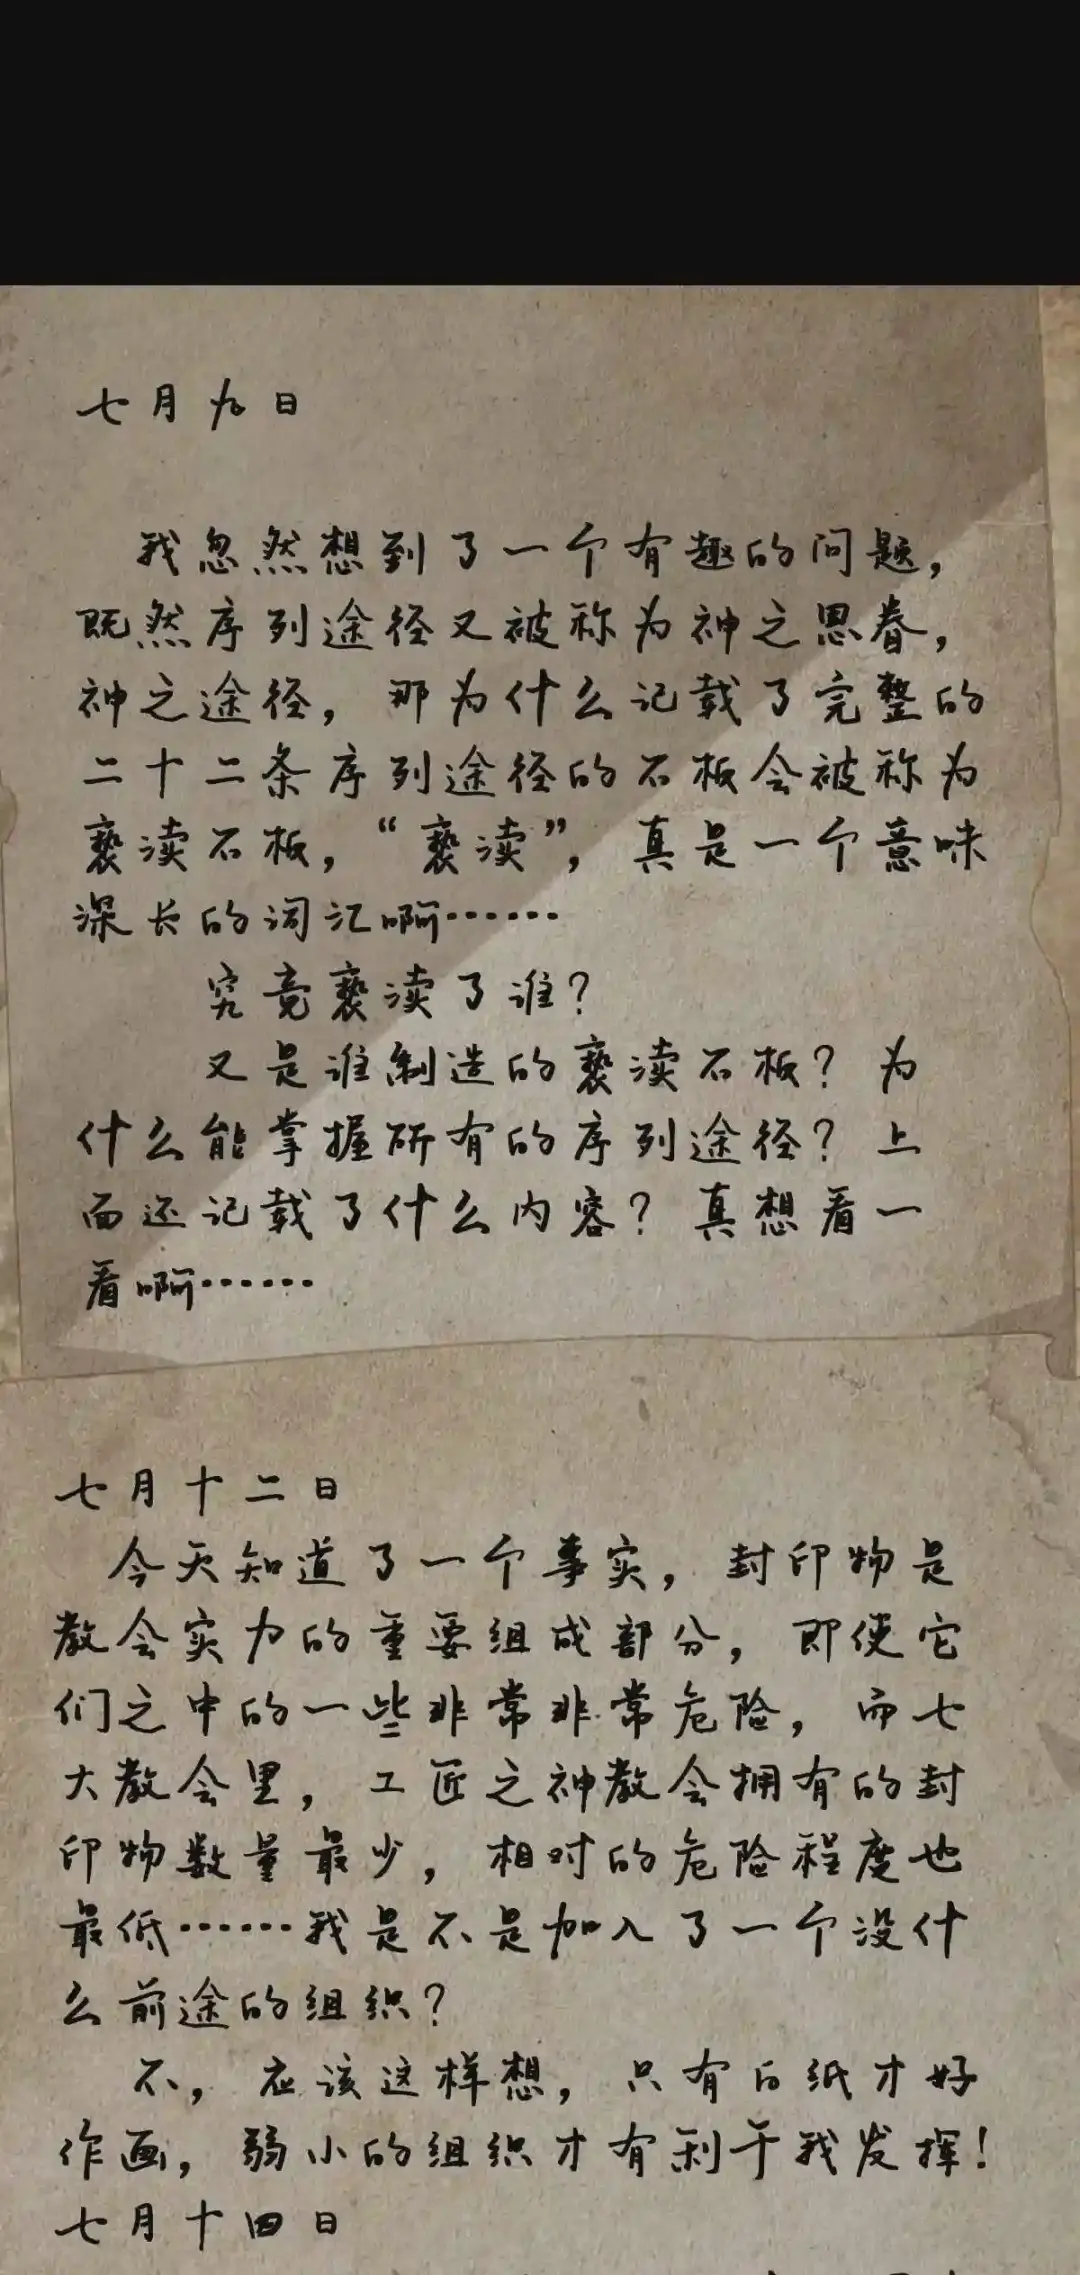 七月九日
我忽然想到了一个有趣的问题，
既然序列途径又被称为神之恩眷，
神之途径，那为什么记载了完整的
二十二条序列途径的石板会被称为
亵渎石板，“亵渎”，真是一个意味
深长的词汇啊……
究竟亵渎了谁？
又是谁制造的亵渎石板？为
什么能掌握所有的序列途径？上
面还记载了什么内容？真想看一
看啊……
七月十二日
今天知道了一个事实，封印物是
教会实力的重要组成部分，即使它
们之中的一些非常非常危险，而七
大教会里，工匠之神教会拥有的封
印物数量最少，相对的危险程度也
最低……我是不是加入了一个没什
么前途的组织？
不，应该这样想，只有白纸才好
作画，弱小的组织才有利于我发挥！
七月十四日